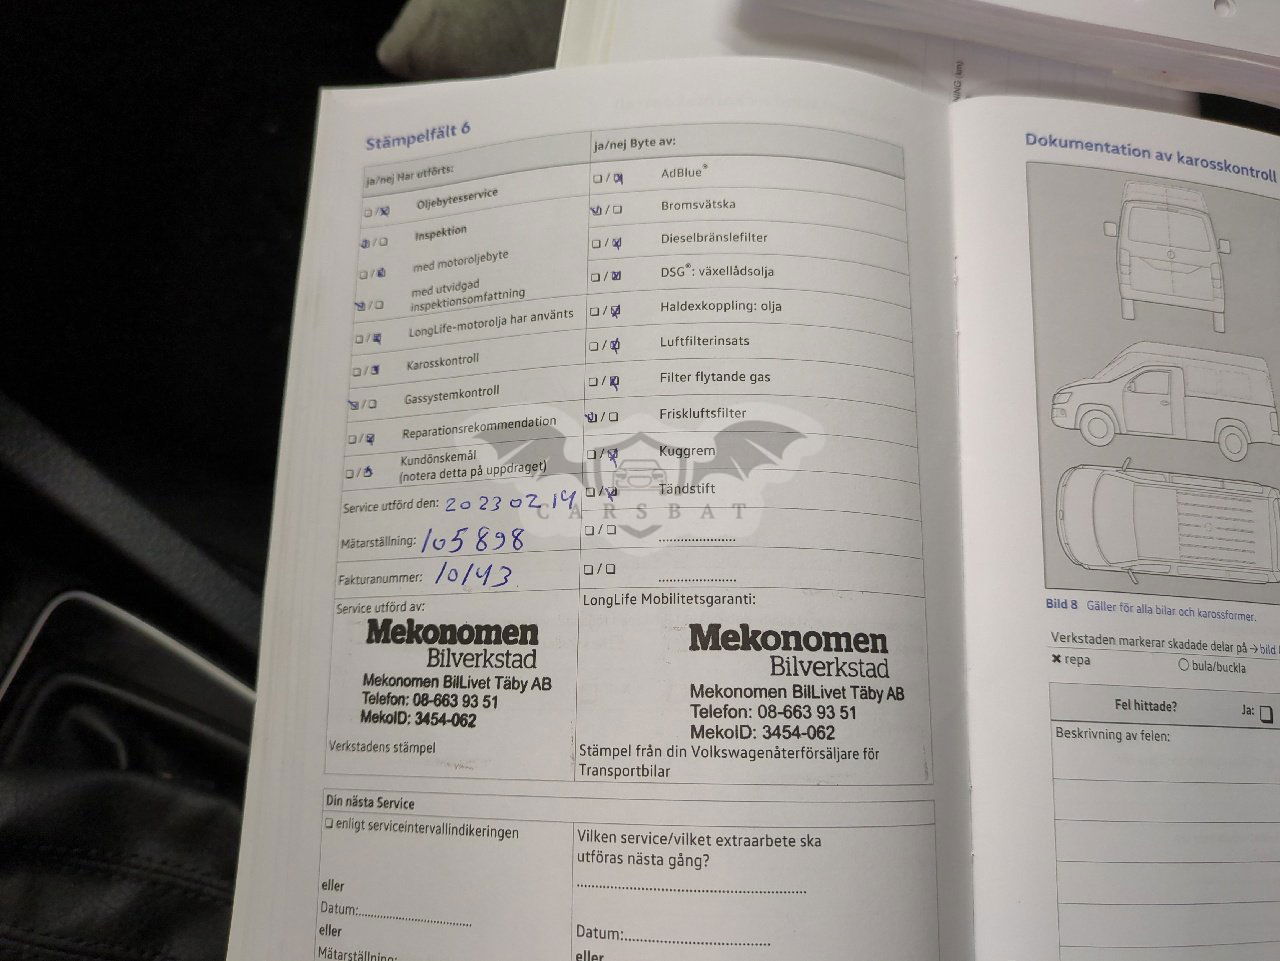 NING (km)
Stämpelfält 6
ja/nej Har utförts:
☐/☒ Oljebytesservice
☒/☐ Inspektion
☐/☒ med motoroljebyte
☒/☐ med utvidgad
inspektionsomfattning
☐/☒ LongLife-motorolja har använts
☐/☒ Karosskontroll
☒/☐ Gassystemkontroll
☐/☒ Reparationsrekommendation
☐/☒ Kundönskemål
(notera detta på uppdraget)
Service utförd den: 20230214
Mätarställning: 105898
Fakturanummer: 10143
Service utförd av:
Mekonomen
Bilverkstad
Mekonomen BilLivet Täby AB
Telefon: 08-663 93 51
MekoID: 3454-062
Verkstadens stämpel
ja/nej Byte av:
☐/☒ AdBlue®
☒/☐ Bromsvätska
☐/☒ Dieselbränslefilter
☐/☒ DSG®: växellådsolja
☐/☒ Haldexkoppling: olja
☐/☒ Luftfilterinsats
☐/☒ Filter flytande gas
☒/☐ Friskluftsfilter
☐/☒ Kuggrem
☐/☒ Tändstift
☐/☐ ......................
☐/☐ ......................
LongLife Mobilitetsgaranti:
Mekonomen
Bilverkstad
Mekonomen BilLivet Täby AB
Telefon: 08-663 93 51
MekoID: 3454-062
Stämpel från din Volkswagenåterförsäljare för
Transportbilar
CARSBAT
Din nästa Service
☐ enligt serviceintervallindikeringen
eller
Datum:..............................
eller
Mätarställning:
Vilken service/vilket extraarbete ska
utföras nästa gång?
............................................................
Datum:......................................
eller
Dokumentation av karosskontroll
Bild 8 Gäller för alla bilar och karossformer.
Verkstaden markerar skadade delar på → bild
✖ repa ○ bula/buckla
Fel hittade? Ja: ☐
Beskrivning av felen: